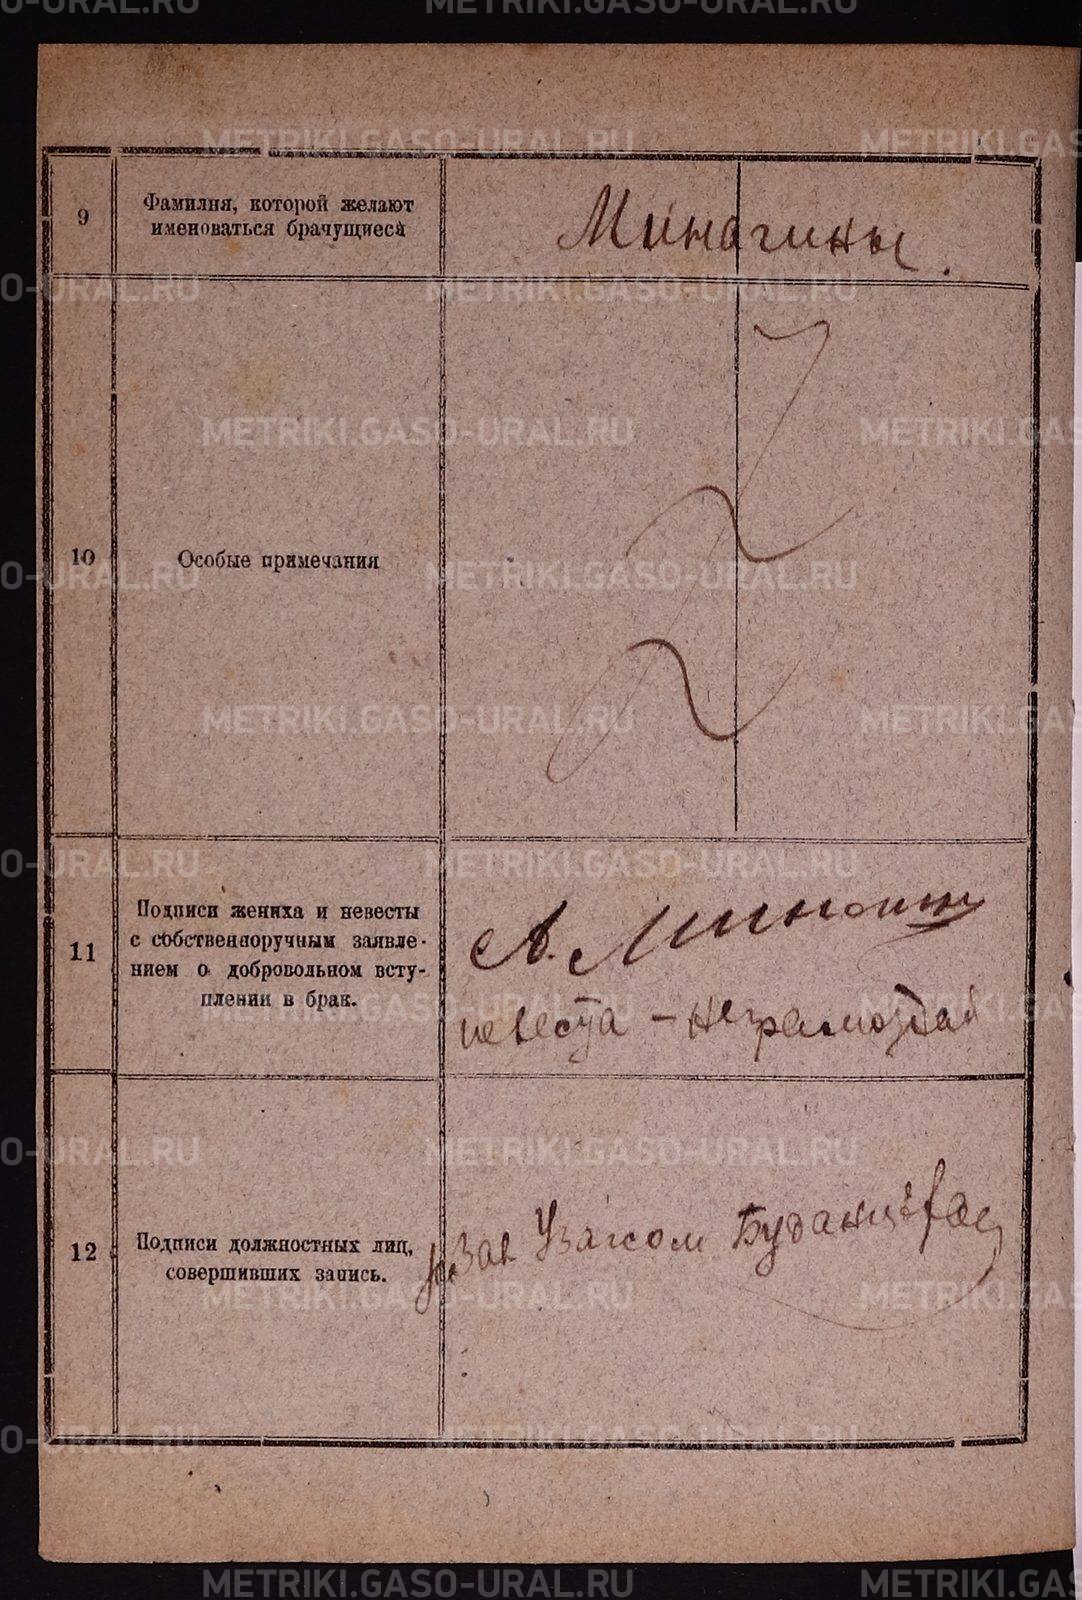 9
Фамилия, которой желают
именоваться брачущиеся
Минагины.
10
Особые примечания
11
Подписи жениха и невесты
с собственноручным заявле-
нием о добровольном всту-
плении в брак.
А.
невеста - неграмотная
12
Подписи должностных лиц,
совершивших запись.
Зав Узагсом
METRIKI.GASO-URAL.RU